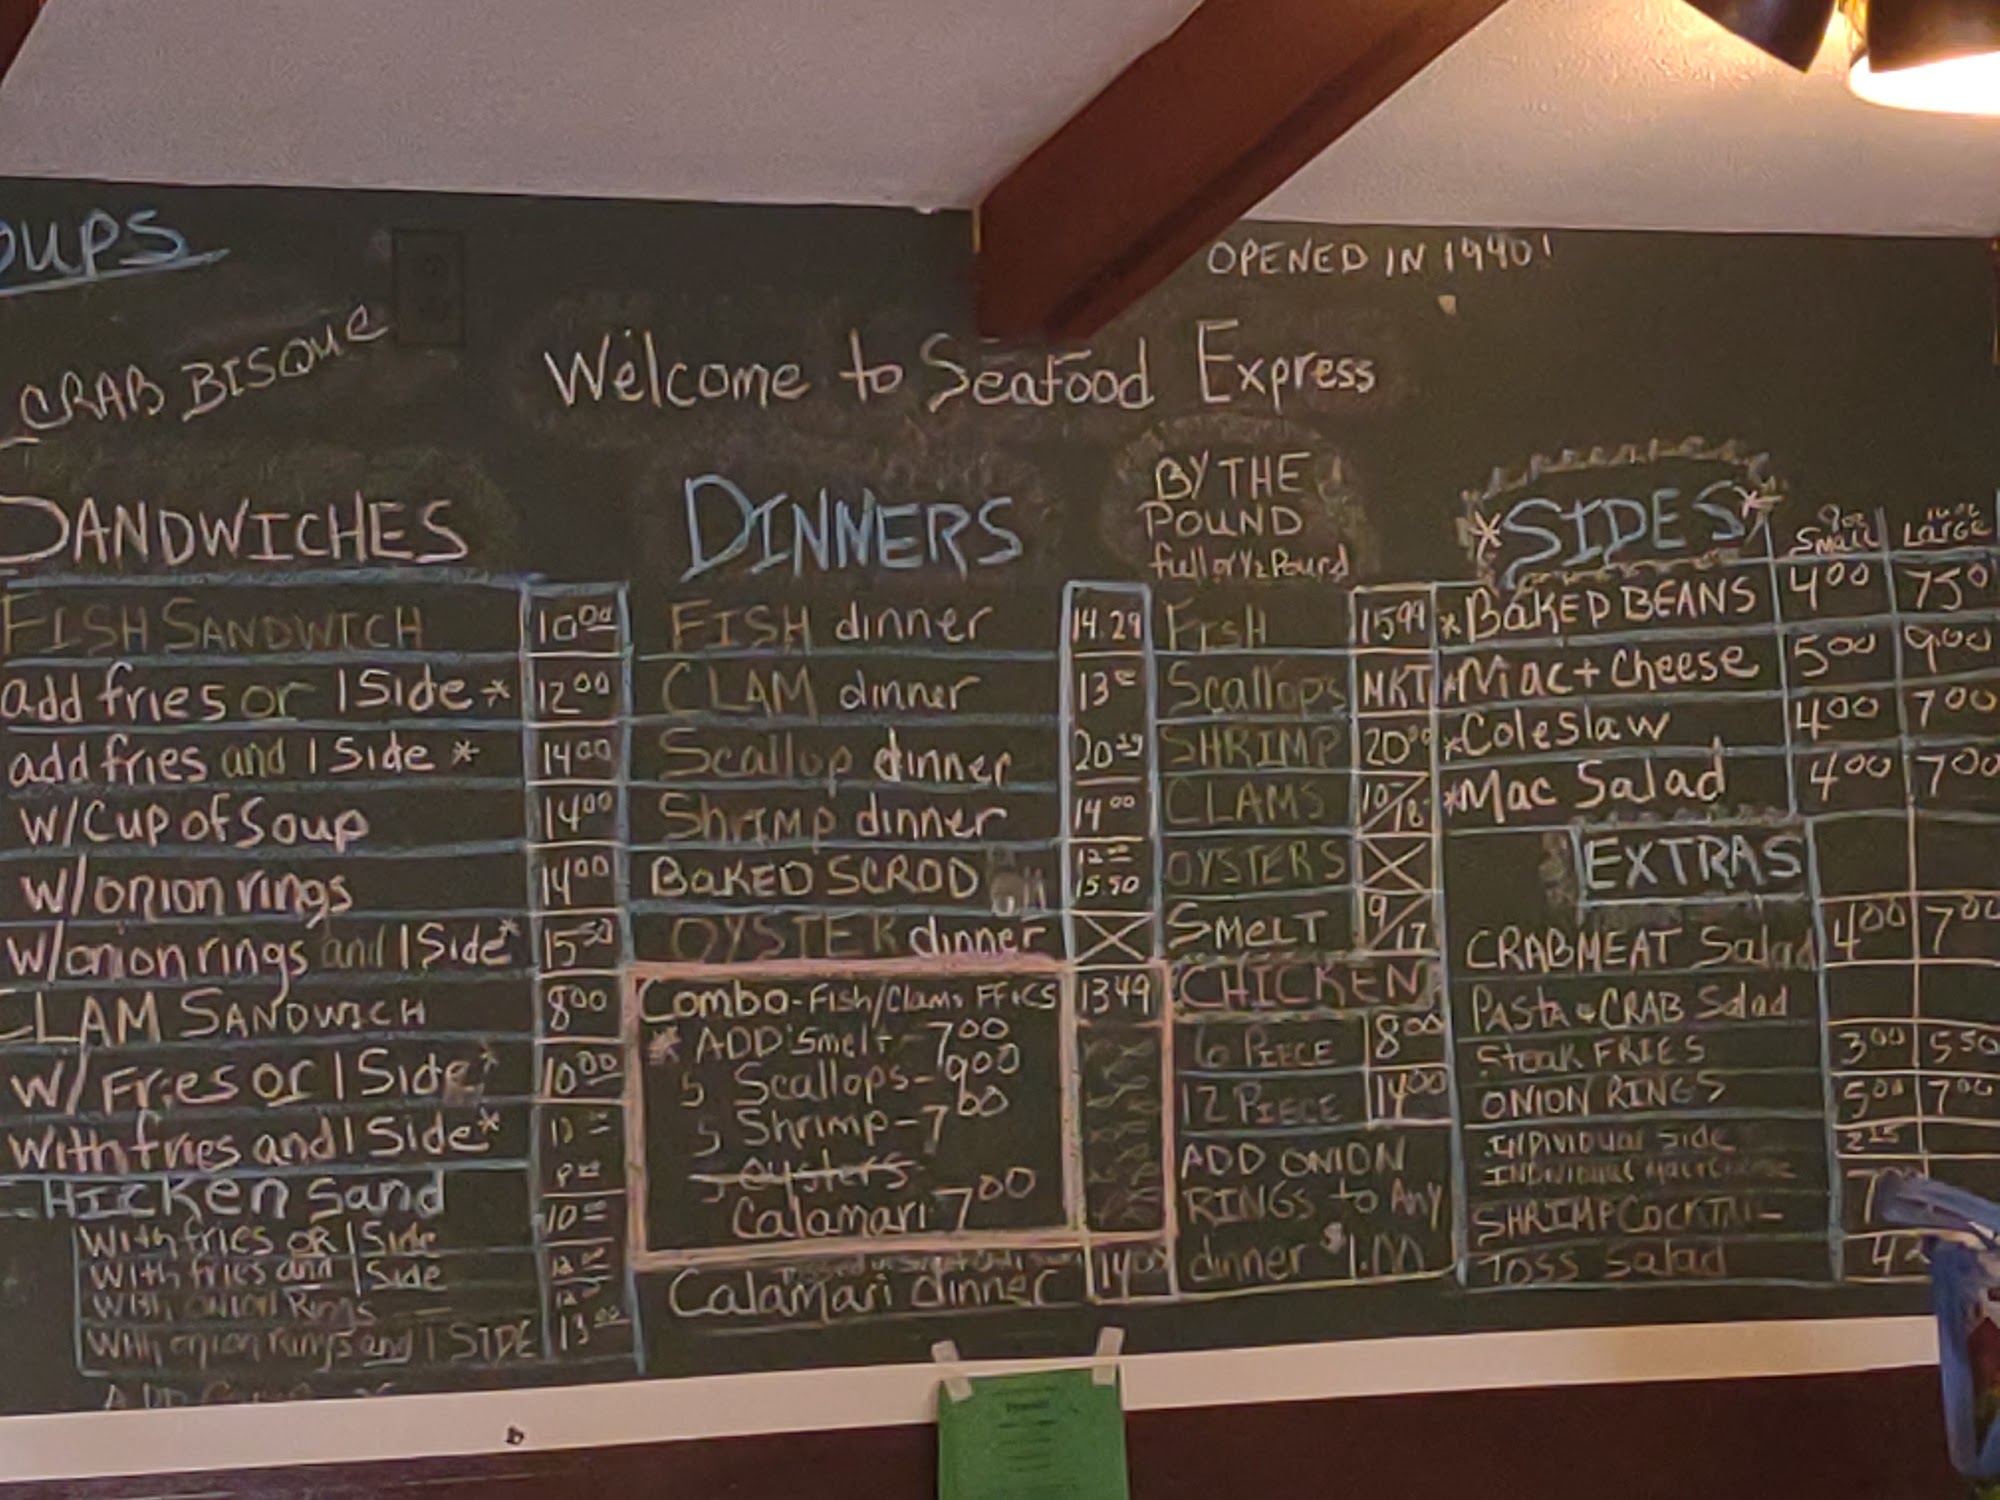 OUPS
CRAB BISQUE
OPENED IN 1990!
Welcome to Seafood Express
SANDWICHES
FISH SANDWICH 10.00
add fries or 1 Side * 12.00
add fries and 1 Side * 14.00
W/Cup of Soup 14.00
W/onion rings 14.00
W/onion rings and 1 Side* 15.50
CLAM SANDWICH 8.00
W/Fries or 1 Side* 10.00
With fries and 1 Side*
CHICKEN Sand
With fries OR 1 Side
With fries and 1 Side
With ONION Rings
With onion rings and 1 SIDE 13.00
DINNERS
FISH dinner 14.29
CLAM dinner
Scallop dinner
Shrimp dinner 14.00
BAKED SCROD 15.50
OYSTER dinner X
Combo - Fish/Clams FF+CS 13.49
* ADD Smelt - 7.00
5 Scallops - 9.00
5 Shrimp - 7.00
5 oysters
Calamari 7.00
Calamari dinner 14.00
BY THE
POUND
full or 1/2 Pound
FISH 15.99
Scallops MKT
SHRIMP 20.00
CLAMS 10/18
OYSTERS X
SMELT 9/17
CHICKEN
6 PIECE 8.00
12 PIECE 14.00
ADD ONION
RINGS to Any
dinner $1.00
*SIDES*
8oz Small
Large
*BAKED BEANS 4.00 7.50
*Mac + Cheese 5.00 9.00
*Coleslaw 4.00 7.00
*Mac Salad 4.00 7.00
EXTRAS
CRABMEAT Salad 4.00 7.00
PASTA & CRAB Salad
Steak FRIES 3.00 5.50
ONION RINGS 5.00 7.00
INDIVIDUAL Side
SHRIMP COCKTAIL
TOSS Salad